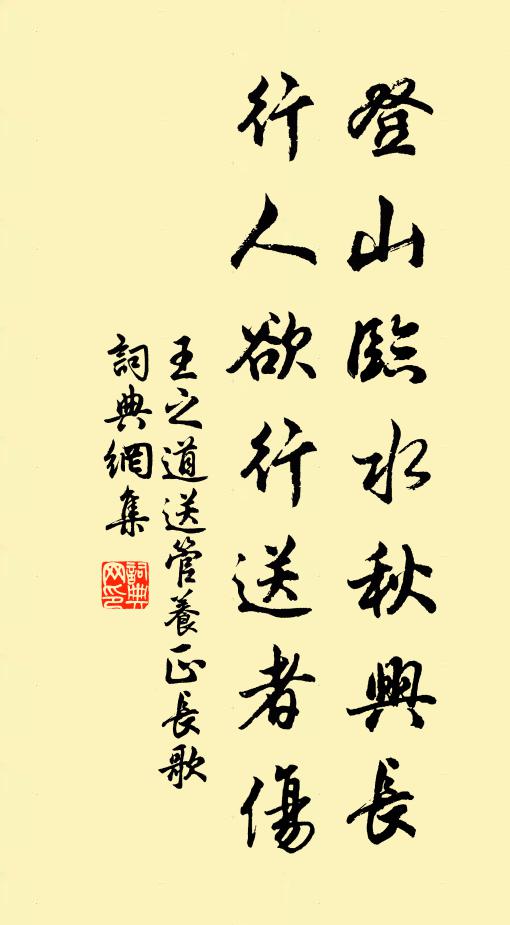 登山臨水秋興長
行人欲行送者傷
王之道送管養正長歌
詞典網集
詞典網印